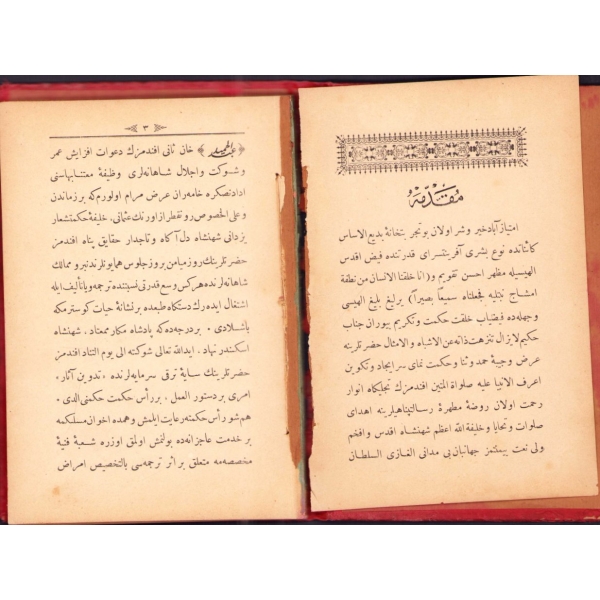 مقدمه
امتیاز آباد خیر و شر اولان بوتجر بتخانهٔ بدیع الاساس
کائناتده نوع بشری آفرینتسرای قدرتنده فیض اقدس
الهیسیله مظهر احسن تقویم و (انا خلقنا الانسان من نطفة
امشاج نبتلیه فجعلناه سمیعاً بصیراً) یرلیغ بلیغ الهیسی
وجهله ده فیضیاب خلقت حکمت و تکریم بیوران جناب
حکیم لایزال تنزهت ذاته عن الاشباه والامثال حضرتلرینه
عرض وجیبهٔ حمد و ثنا و حکمت نمای سر ایجاد و تکوین
اعرف الانبیا علیه صلواة المتین افندمزك تجلیکاه انوار
رحمت اولان روضهٔ مطهرهٔ رسالتپناهیلرینه اهدای
صلوات و تحایا و خلیفة الله اعظم شهنشاه اقدس و افخم
ولی نعمت بیمنتمز جهانبان بی مدانی الغازی السلطان
۳
﴿عبدالحمید﴾ خان ثانی افندمزك دعوات افزایش عمر
و شوکت و اجلال شاهانه لری وظیفهٔ معتنابهاسنی
ادادنصکره خامه ران عرض مرام اولورم که بر زماندن
و علی الخصوص رونقطراز اورنك عثمانی، خلیفهٔ حکمتشعار
یزدانی شهنشاه دل آکاه و تاجدار حقایق پناه افندمز
حضرتلرینك روز میامن بروز جلوس همایونلرندنبرو ممالك
شاهانه لرنده هرکس وسع قدرتی نسبتنده ترجمه و یا تألیف ایله
اشتغال ایده رك دستکاه طبعده بر نشانهٔ حیات کوسترمکه
باشلادی. بر درجه ده که پادشاه مکارممعتاد، شهنشاه
اسکندر نهاد، ایدالله تعالی شوکته الی یوم التناد افندمز
حضرتلرینك سایهٔ ترقی سرمایه لرنده، تدوین آثار،
امری بر دستور العمل، بر رأس حکمت حکمنی آلدی.
هم شو رأس حکمته رعایت ایلمش و همده اخوان مسلکمه
بر خدمت عاجزانه ده بولنمش اولمق اوزره شعبهٔ فنیهٔ
مخصصه مه متعلق بر اثر ترجمه سی بالتخصیص امراض